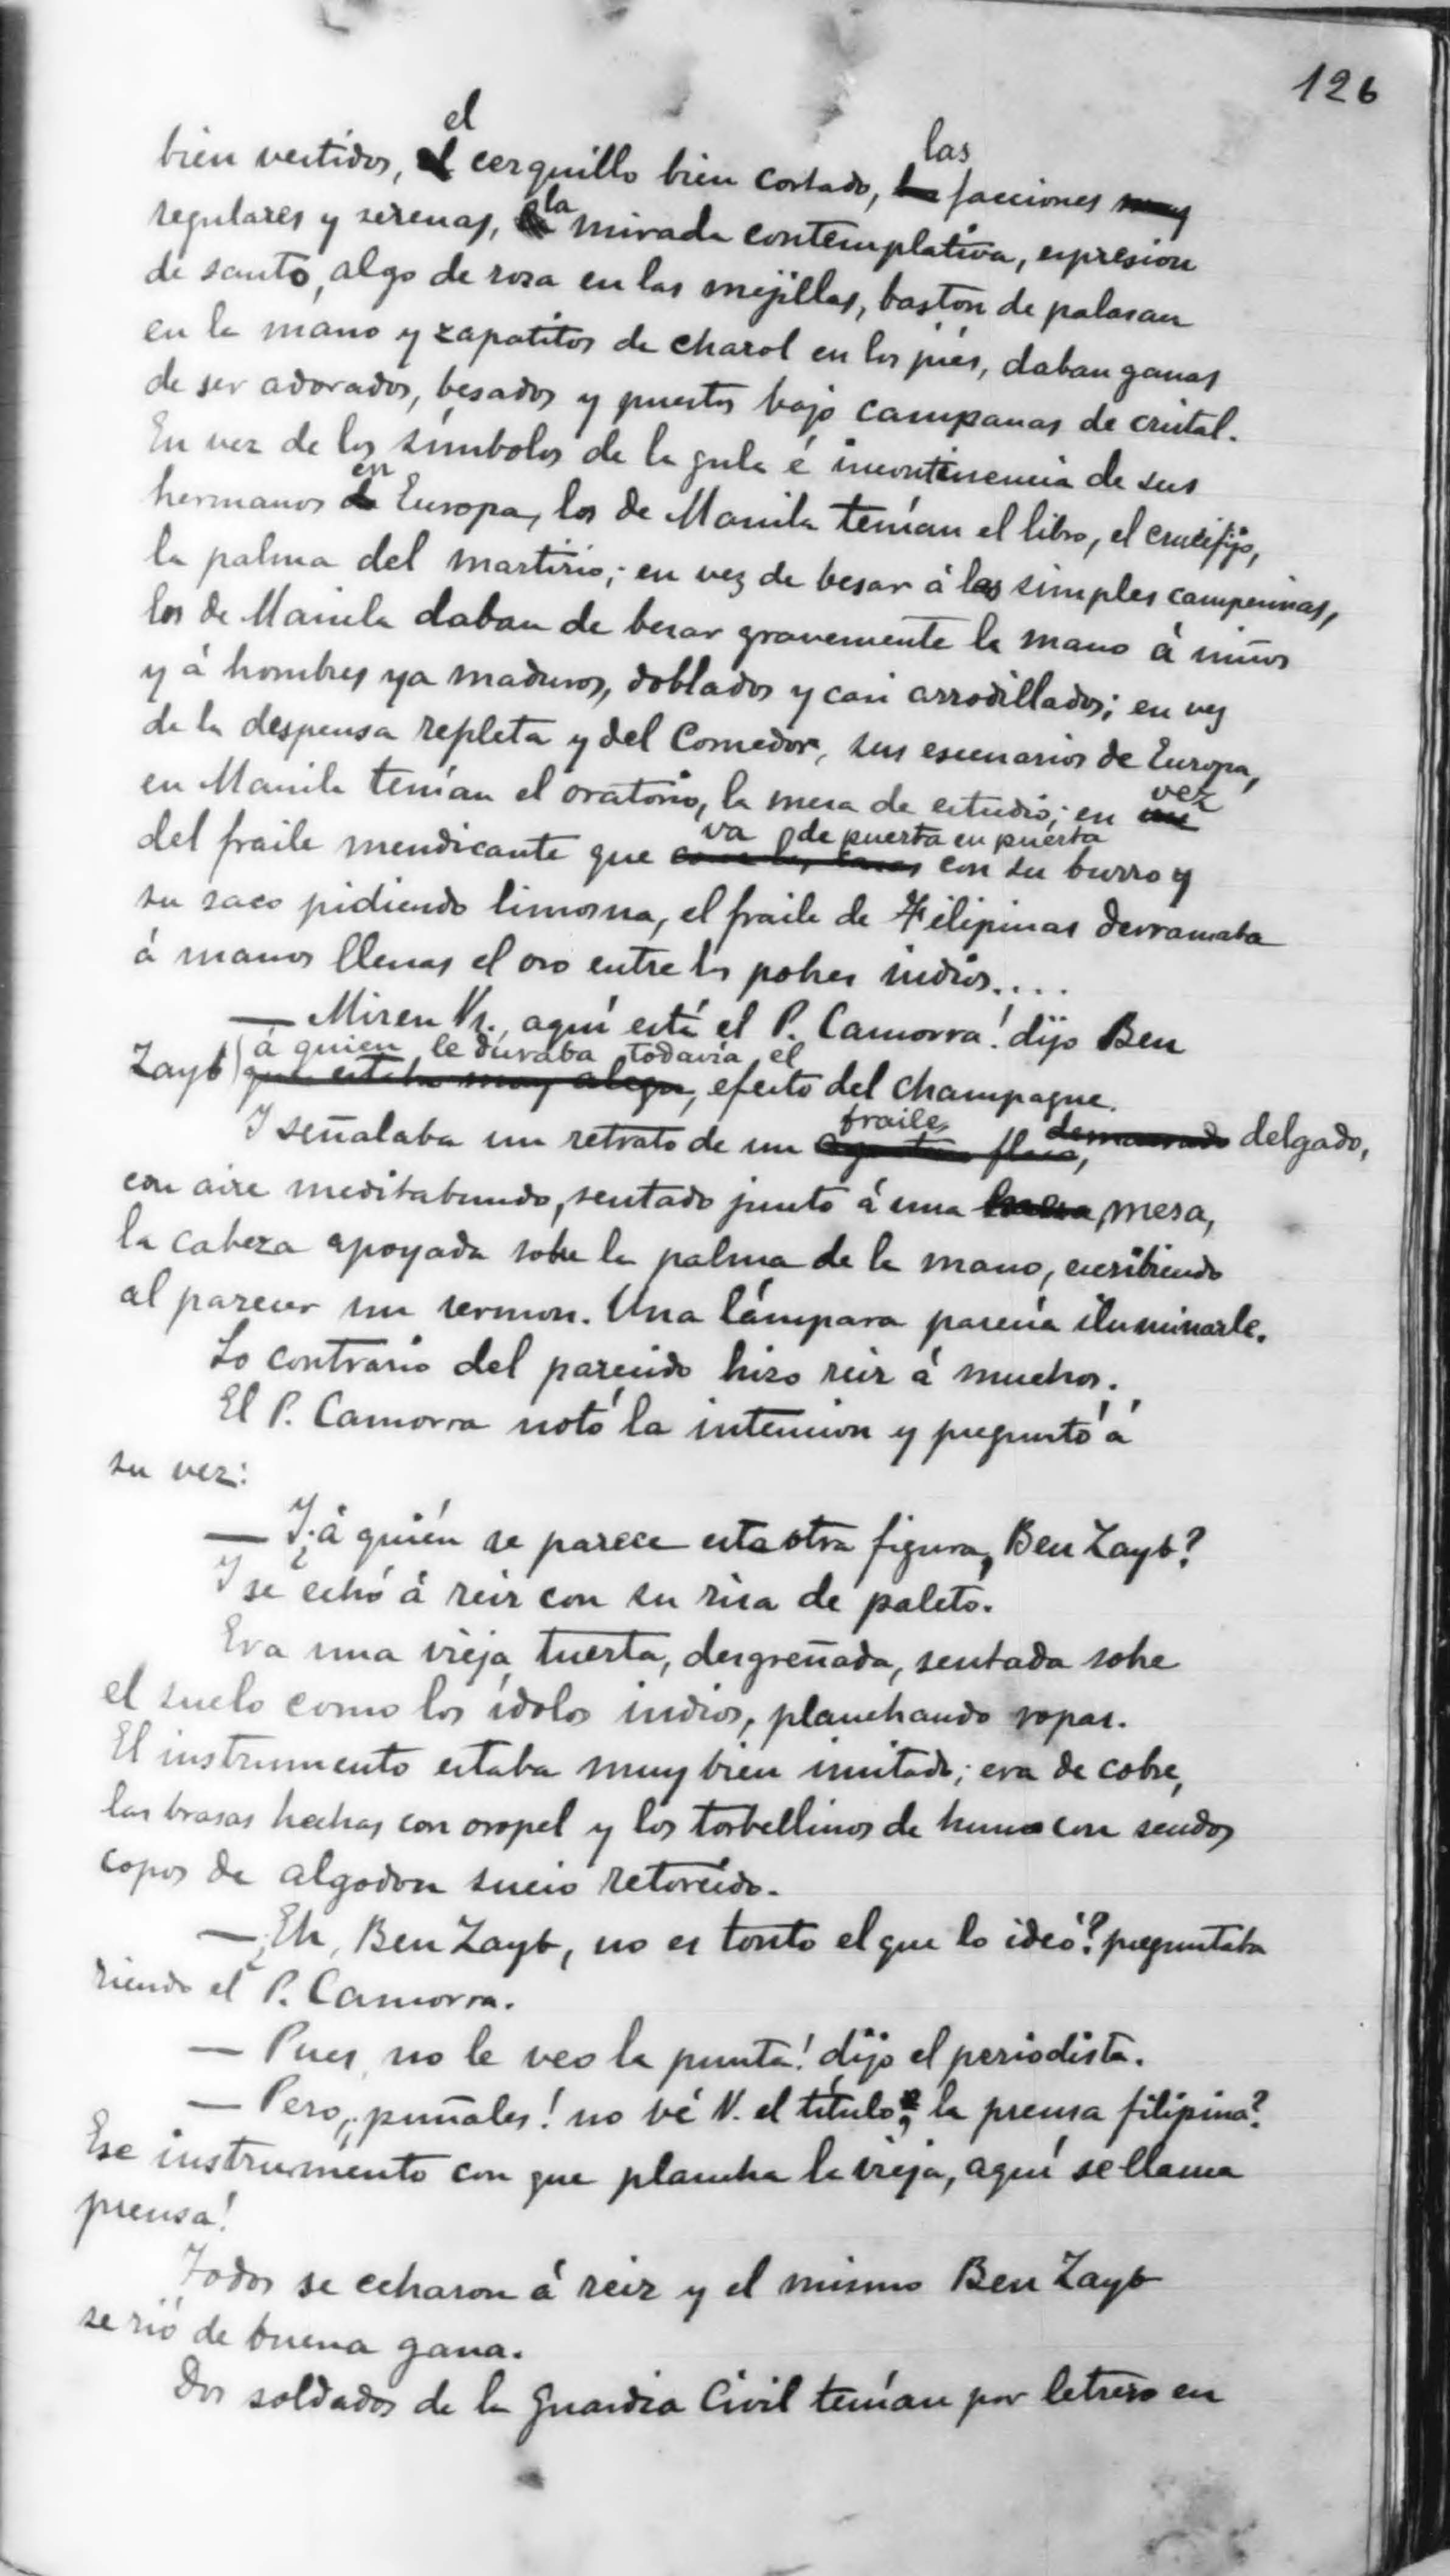 126
bien vestidos, el cerquillo bien cortado, las facciones
regulares y serenas, la mirada contemplativa, espresion
de santo, algo de rosa en las mejillas, baston de palasan
en la mano y zapatitos de charol en los piés, daban ganas
de ser adorados, besados y puestos bajo campanas de cristal.
En vez de los símbolos de la gula é incontinencia de sus
hermanos en Europa, los de Manila tenían el libro, el crucifijo,
la palma del martirio; en vez de besar á las simples campesinas,
los de Manila daban de besar gravemente la mano á niños
y á hombres ya maduros, doblados y casi arrodillados; en vez
de la despensa repleta y del comedor, sus escenarios de Europa,
en Manila tenían el oratorio, la mesa de estudio; en vez
del fraile mendicante que va de puerta en puerta con su burro y
su saco pidiendo limosna, el fraile de Filipinas derramaba
á manos llenas el oro entre los pobres indios....
— Miren Vs., aquí está el P. Camorra! dijo Ben
Zayb á quien le duraba todavía el efecto del champagne.
Y señalaba un retrato de un fraile, delgado,
con aire meditabundo, sentado junto á una mesa,
la cabeza apoyada sobre la palma de la mano, escribiendo
al parecer un sermon. Una lámpara parecía iluminarle.
Lo contrario del parecido hizo reir á muchos.
El P. Camorra notó la intencion y preguntó á
su vez:
— Y ¿á quién se parece esta otra figura, Ben Zayb?
Y se echó á reir con su risa de paleto.
Era una vieja tuerta, desgreñada, sentada sobre
el suelo como los ídolos indios, planchando ropas.
El instrumento estaba muy bien imitado; era de cobre,
las brasas hechas con oropel y los torbellinos de humo con sendos
copos de algodon sucio retorcido.
— ¿Eh, Ben Zayb, no es tonto el que lo ideó? preguntaba
riendo el P. Camorra.
— Pues, no le veo la punta! dijo el periodista.
— Pero, ¡puñales! no vé V. el título, la prensa filipina?
Ese instrumento con que plancha la vieja, aquí se llama
prensa!
Todos se echaron á reir y el mismo Ben Zayb
se rió de buena gana.
Dos soldados de la Guardia Civil tenían por letrero en